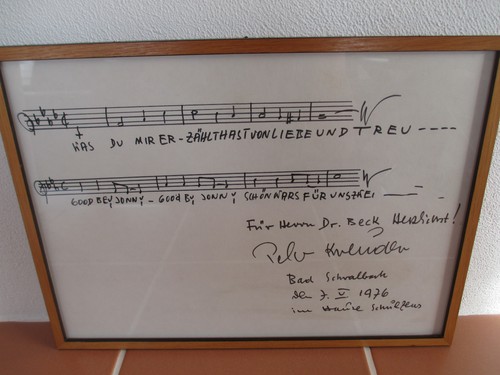 WAS DU MIR ER-ZÄHLT HAST VON LIEBE UND TREU ----
GOOD BEY JONNY - GOOD BY JONNY SCHÖN WARS FÜR UNS ZWEI
Für Herrn Dr. Beck Herzlichst!
Peter Kreuder
Bad Schwalbach
den 7. V. 1976
im Hause Schützens